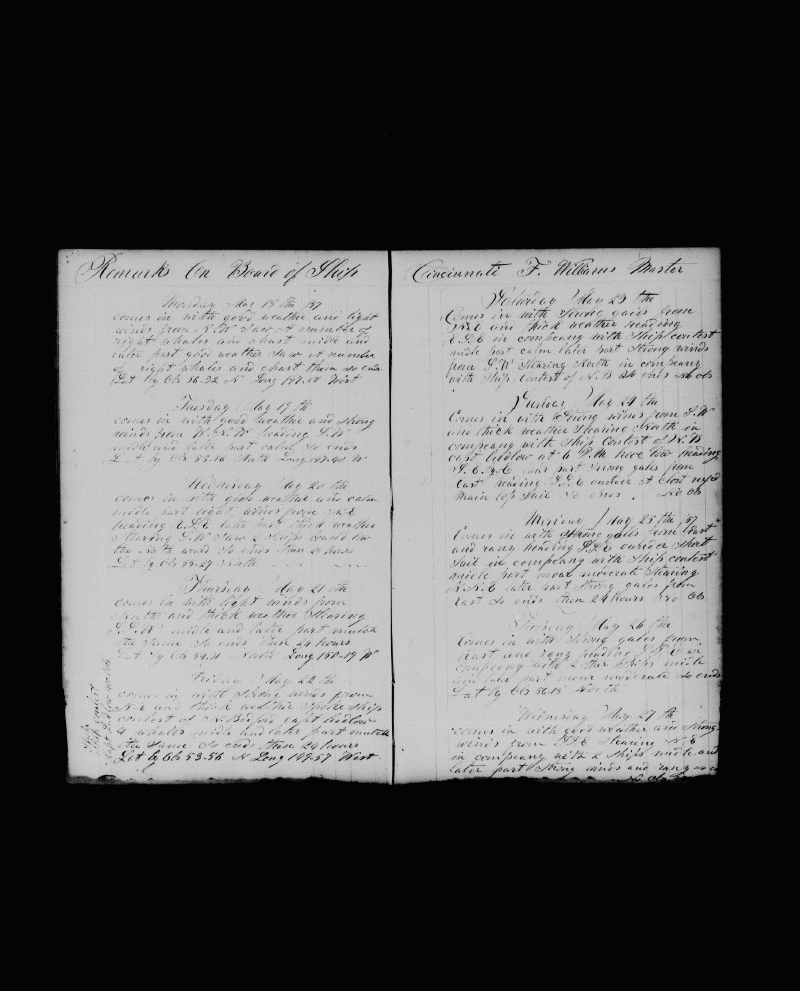 Remarks On Board of Ship
Monday May 18 th 57
comes in with good weather and light
winds from N.W Saw A number of
right whales and chast midle and
later part good weather Saw A number
of right whales and chast them so ends
Lat by Ob 56.22 N Long West
Tuesday May 19 th
comes in with good weather and strong
winds from W.N.W heading S.W
midle and later part calm So ends
Lat by Ob North Long W
Wednesday May 20 th
comes in with good weather and calm
midle part light winds from N.E
heading E.S.E later part thick weather
Stearing S.W Saw 2 Ships
the North ward So ends these 24 hours
Lat by Ob North
Thursday May 21 th
comes in with light winds from
North and thick weather Stearing
S.S.W midle and later part mutch
the Same So ends these 24 hours
Lat by Ob North Long 180-19 W
Friday May 22 th
comes in with Strong winds from
N.E and thick weather Spoke Ship
contest of N. Bedford capt Ludlow
4 whales midle and later part mutch
the Same So ends these 24 hours
Lat by Ob 53-56 N Long 179-57 West
Ship contest
Capt Ludlow
Cincinnati F. Williams Master
Saturday May 23 th
Comes in with Strong gales from
and thick weather heading
E.S.E in company with Ship contest
midle part calm later part Strong winds
from S.W Stearing North in company
with Ship Contest of N.B So ends No Ob
Sunday May 24 th
Comes in with Strong winds from S.W
and thick weather Stearing North in
company with Ship Contest of N.B
capt Ludlow at 6 P.M hove too heading
later part Strong gales from
East heading S.S.E under A Close reefed
Main top Sail So ends . No Ob
Monday May 25 th 57
Comes in with Strong gales from East
and rany heading S.S.E under Short
Sail in company with Ship contest
midle part more moderate Stearing
N.N.E later part Strong gales from
East So ends these 24 hours No Ob
Tuesday May 26 th
Comes in with Strong gales from
East and rany heading
company with 2 other Ships midle
and later part more moderate So ends
Lat by Ob North
Wednesday May 27 th
comes in with good weather and Strong
winds from S.S.E Stearing N.E
in company with 2 Ships midle and
later part Strong winds and rany So
No Ob